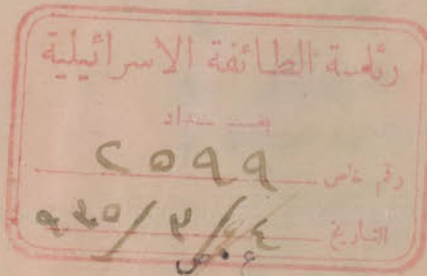 رئاسة الطائفة الاسرائيلية
بغــداد
رقم خاص ٢٥٩٩
التاريخ ٢٤/٣/٩٣٥